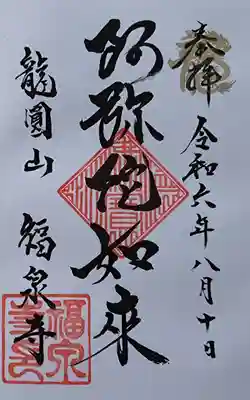 奉拝
令和六年八月十日
阿弥陀如来
龍圓山 福泉寺
福泉寺